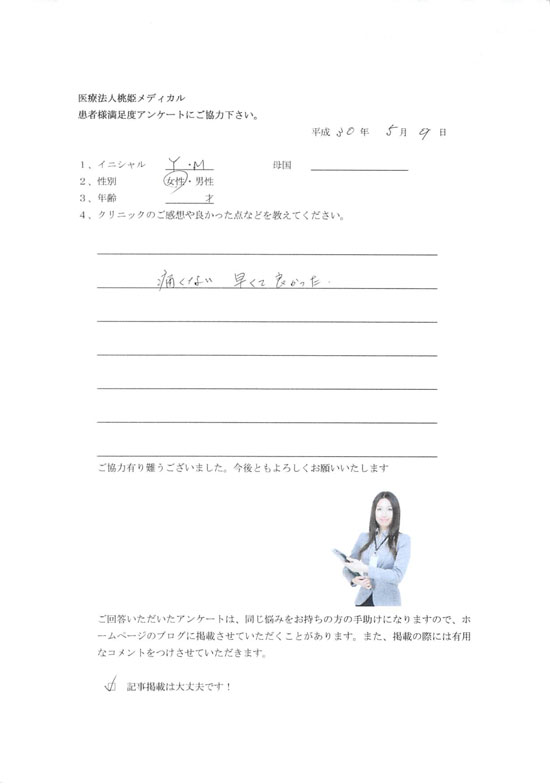 医療法人桃姫メディカル
患者様満足度アンケートにご協力下さい。
平成 30 年 5 月 9 日
1、イニシャル Y・M 母国
2、性別 女性・男性
3、年齢 才
4、クリニックのご感想や良かった点などを教えてください。
痛くない 早くて良かった.
ご協力有り難うございました。今後ともよろしくお願いいたします
ご回答いただいたアンケートは、同じ悩みをお持ちの方の手助けになりますので、ホ
ームページのブログに掲載させていただくことがあります。また、掲載の際には有用
なコメントをつけさせていただきます。
☑ 記事掲載は大丈夫です！